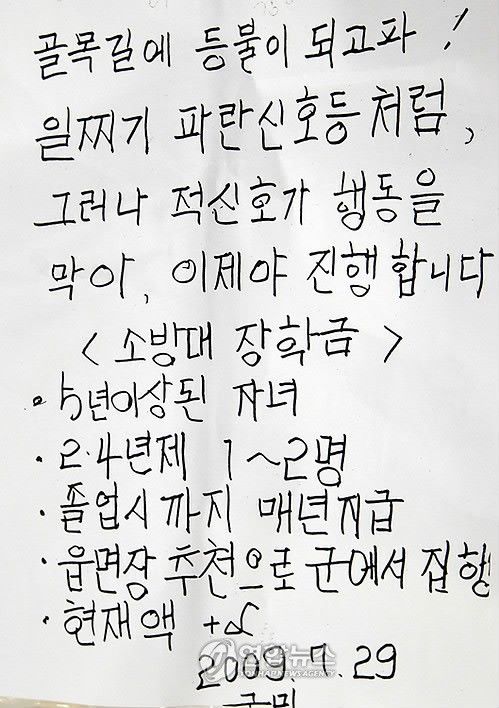 골목길에 등불이 되고파 !
일찌기 파란신호등처럼,
그러나 적신호가 행동을
막아, 이제야 진행합니다
< 소방대 장학금 >
· 5년이상된 자녀
· 2·4년제 1~2명
· 졸업시까지 매년지급
· 읍면장 추천으로 군에서 집행
· 현재액 +α
연합뉴스
YONHAP NEWS AGENCY
2009. 7. 29
군민